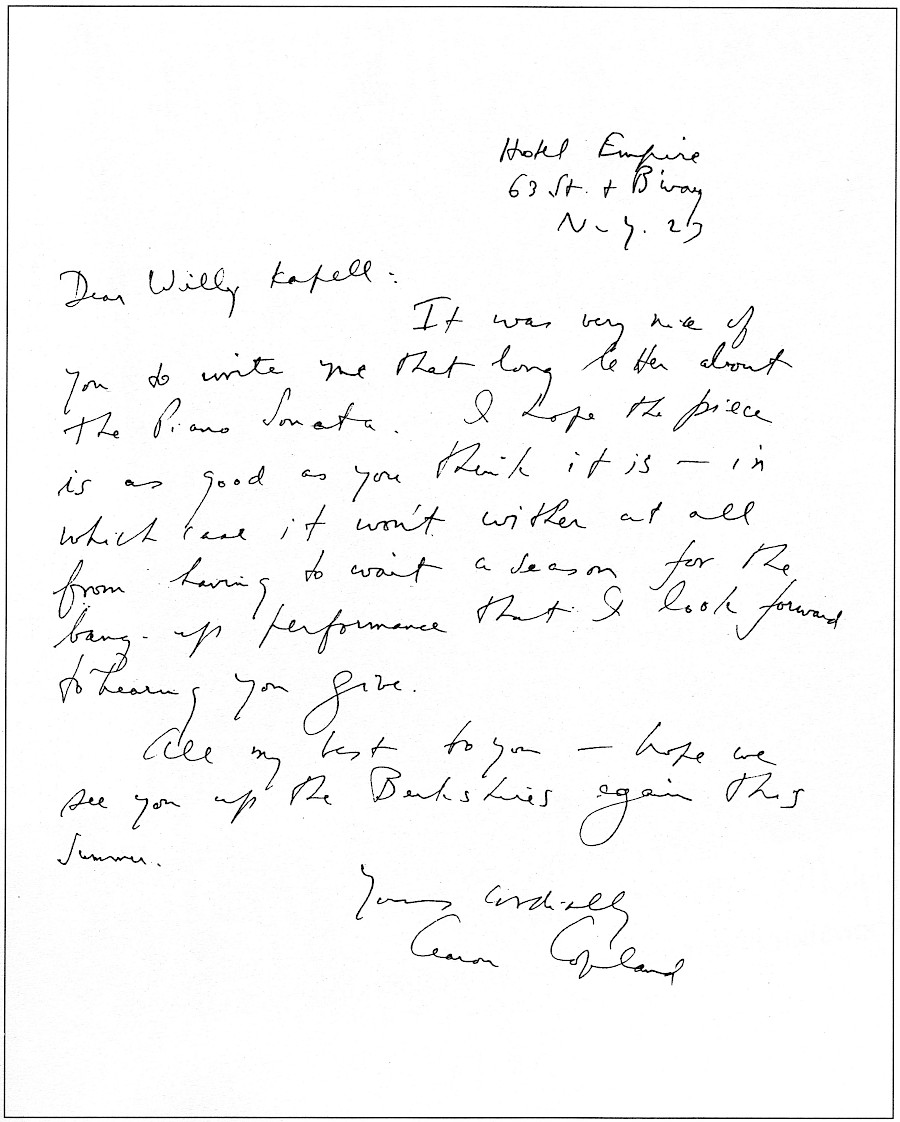 Hotel Empire
63 St. + B'way
N.Y. 23
Dear Willy Kapell:
It was very nice of
you to write me that long letter about
the Piano Sonata. I hope the piece
is as good as you think it is — in
which case it won't wither at all
from having to wait a season for the
bang-up performance that I look forward
to hearing you give.
All my best to you — hope we
see you up the Berkshires again this
summer.
Yours cordially
Aaron Copland